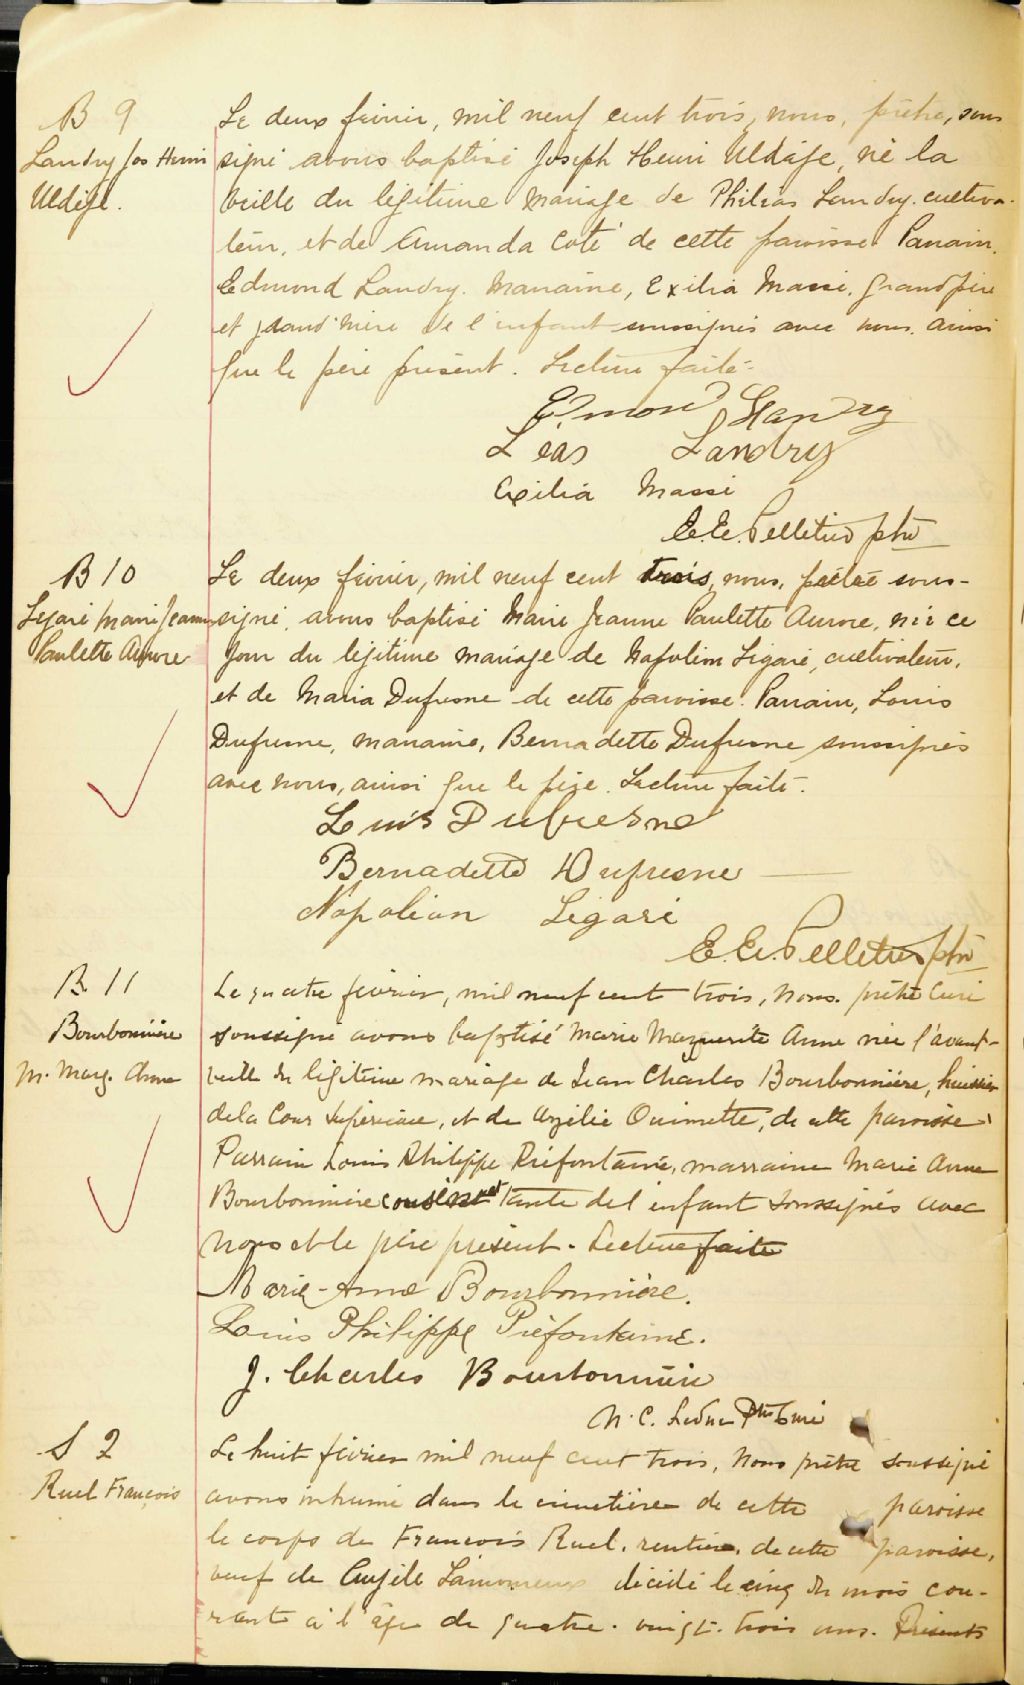 B 9
Landry Jos Henri
Uldège.
Le deux février, mil neuf cent trois, nous, prêtre, sous
signé avons baptisé Joseph Henri Uldège, né la
veille du légitime mariage de Philéas Landry, cultiva-
teur, et de Amanda Coté de cette paroisse. Parrain,
Edmond Landry. Marraine, Exilia Massé, grand père
et grand'mère de l'enfant soussignés avec nous, ainsi
que le père présent. Lecture faite.
Edmond Landry
Léas Landry
Exilia Massé
E.E. Pelletier ptre
B 10
Légaré Marie Jeanne
Paulette Aurore
Le deux février, mil neuf cent trois, nous, prêtre sous-
signé, avons baptisé Marie Jeanne Paulette Aurore, née ce
jour du légitime mariage de Napoléon Légaré, cultivateur,
et de Maria Dufresne de cette paroisse. Parrain, Louis
Dufresne, marraine, Bernadette Dufresne soussignés
avec nous, ainsi que le père. Lecture faite.
Louis Dufresne
Bernadette Dufresne
Napoléon Légaré
E.E. Pelletier ptre
B 11
Bourbonnière
M. Marg. Anne
Le quatre février, mil neuf cent trois, Nous, prêtre Curé
soussigné avons baptisé Marie Marguerite Anne née l'avant-
veille du légitime mariage de Jean Charles Bourbonnière, huissier
de la Cour Supérieure, et de Azélie Ouimette, de cette paroisse.
Parrain Louis Philippe Préfontaine, marraine Marie Anne
Bourbonnière cousin et tante de l'enfant soussignés avec
nous et le père présent. Lecture faite
Marie-Anne Bourbonnière.
Louis Philippe Préfontaine.
J. Charles Bourbonnière
N. C. Leduc Ptre Curé
S 2
Ruel François
Le huit février mil neuf cent trois, Nous prêtre soussigné
avons inhumé dans le cimetière de cette paroisse
le corps de François Ruel, rentier, de cette paroisse,
veuf de Angèle Lamoureux décédé le cinq du mois cou-
rant à l'âge de quatre-vingt-trois ans. Présents